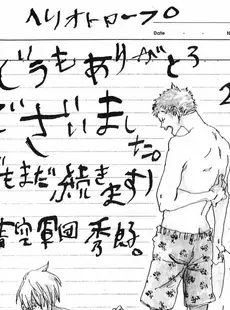 ヘリオトロープ。
Date
N
どうもありがとう
2
ございました。
でもまだ続きます)
青空軍団 秀好。